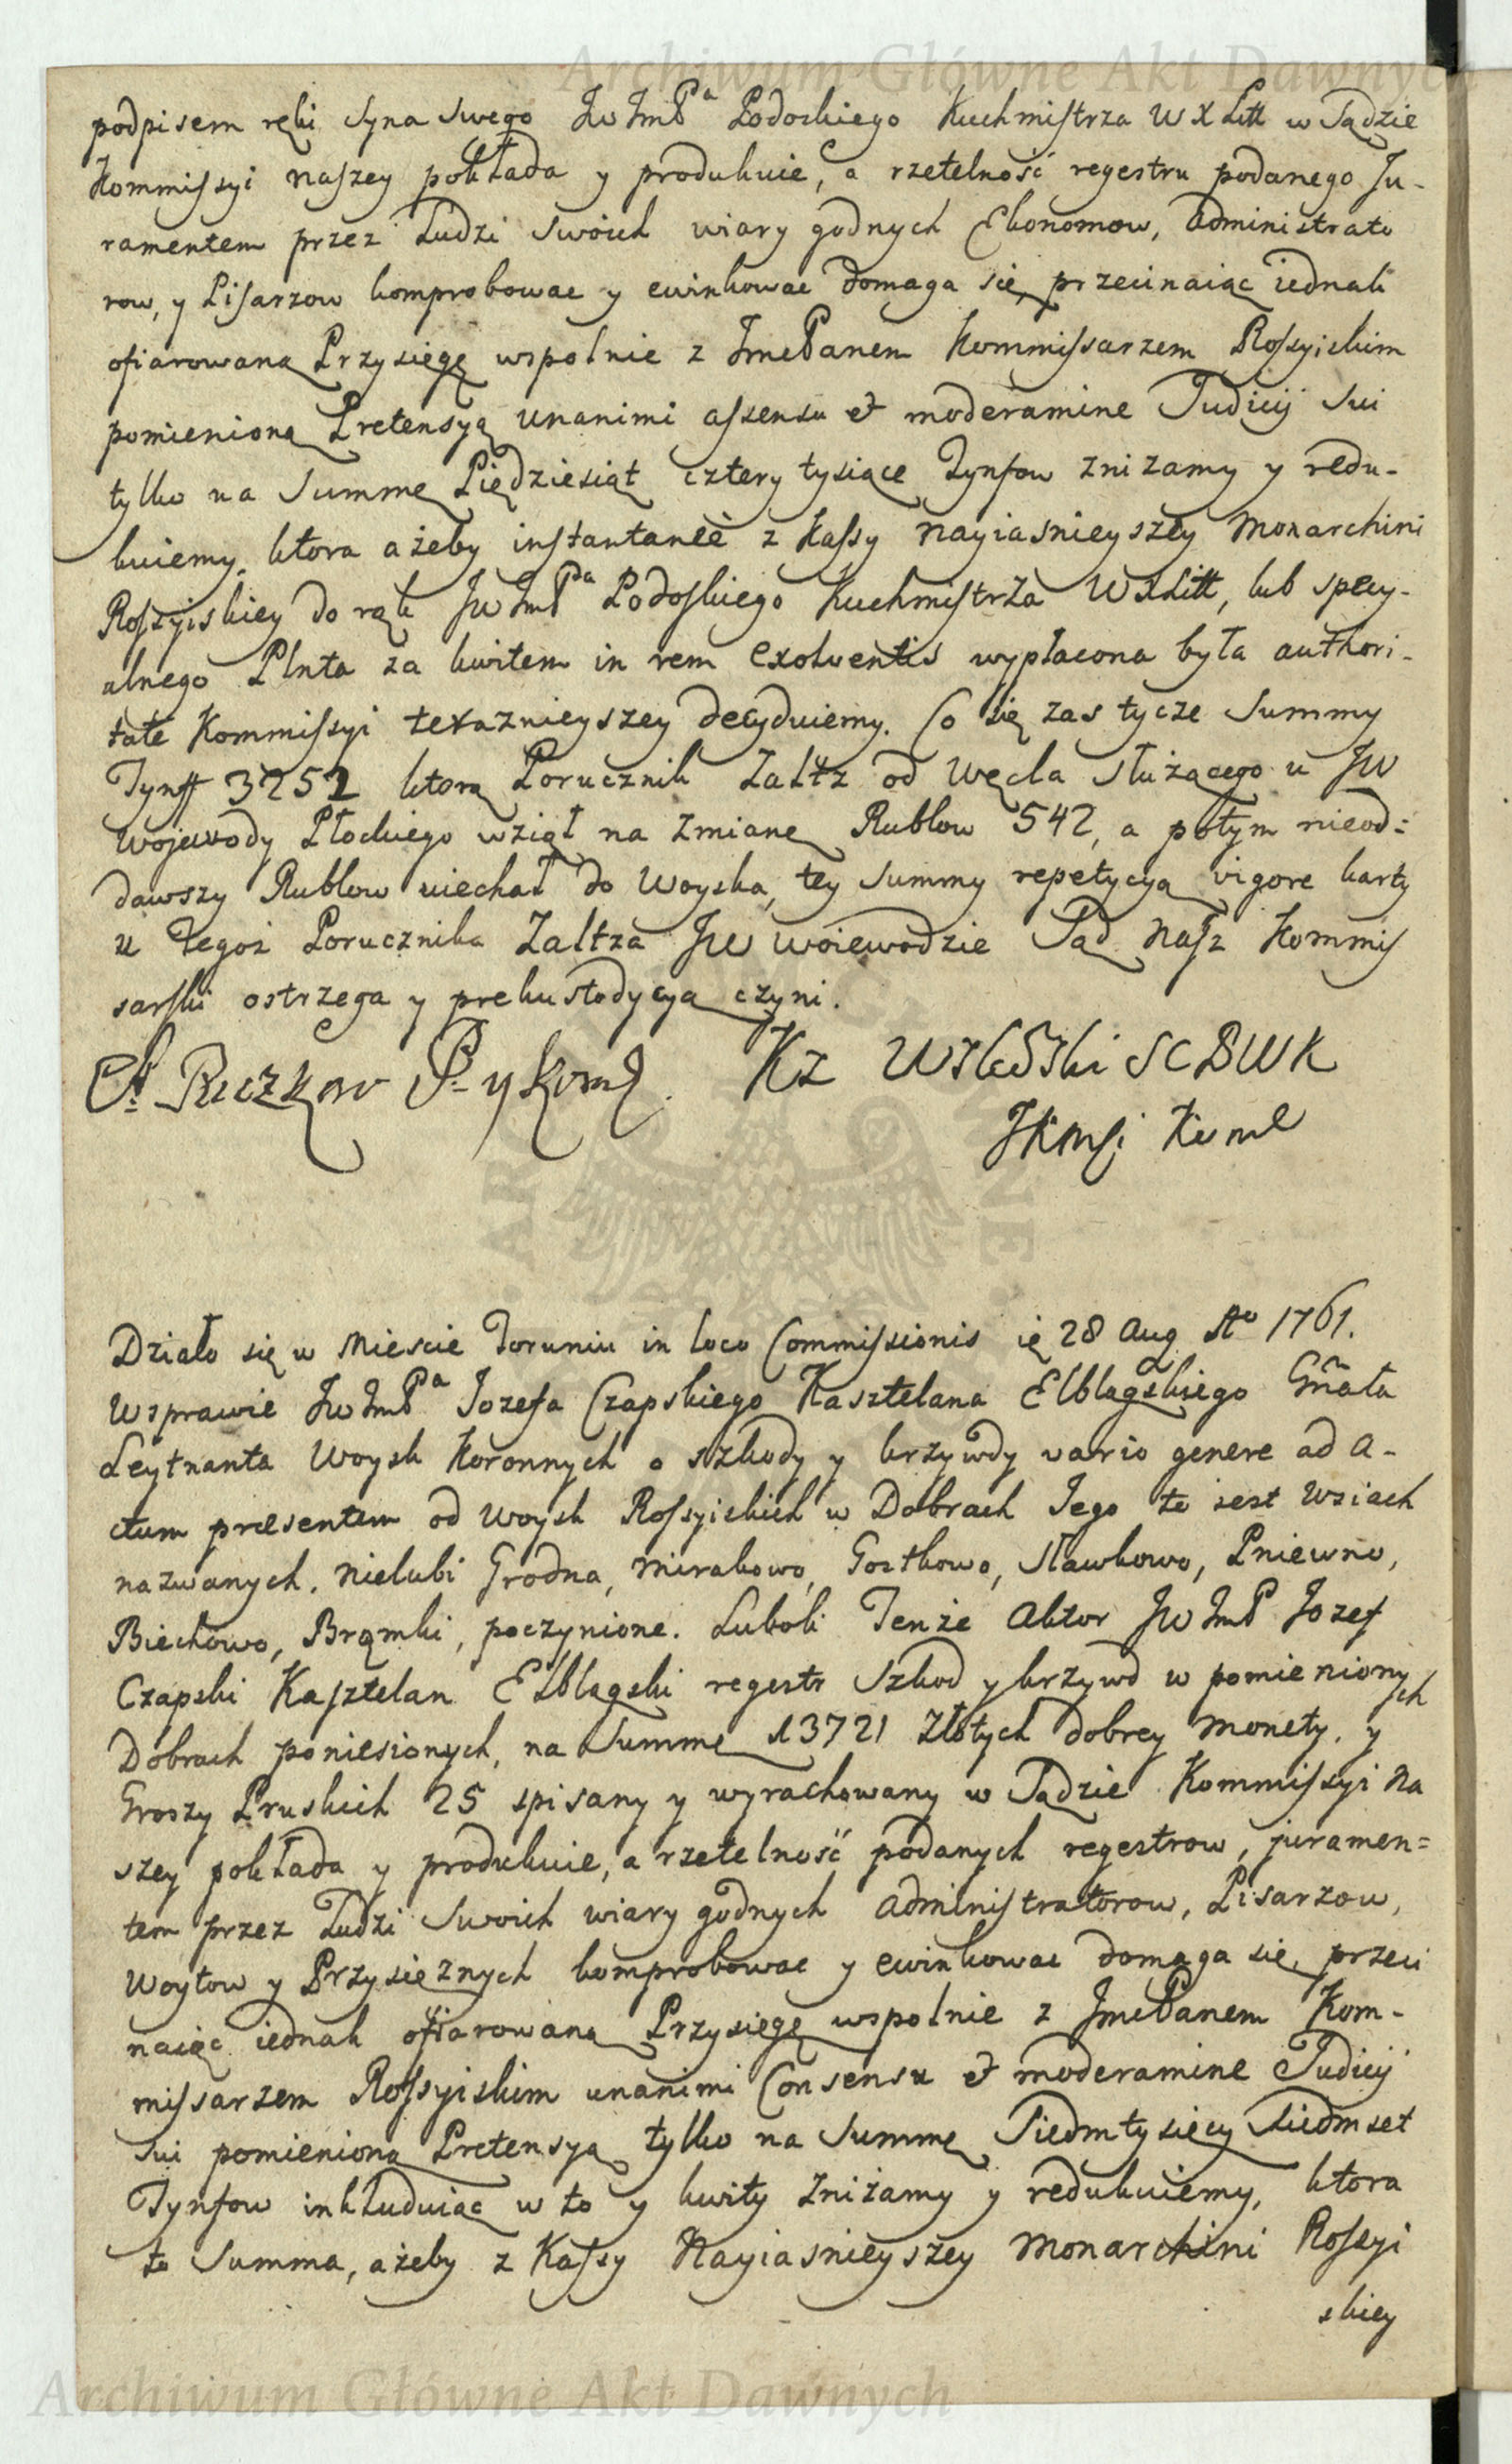 Archiwum Główne Akt Dawnych
podpisem ręki Syna Swego Jw ImPa Podoskiego Kuchmistrza W X Litt w Sądzie
Kommissyi naszey pokłada y produkuie, a rzetelność regestru podanego Ju-
ramentem przez Ludzi Swoich wiary godnych Ekonomow, administrato
row, y Pisarzow komprobowac y ewinkowac domaga się, przecinaiąc iednak
ofiarowaną Przysięgę wspolnie z ImcPanem Kommissarzem Rossyiskim
pomienioną Pretensyą unanimi assensu et moderamine Judicij Sui
tylko na Summę Piędziesiąt cztery tysiące Tynfow znizamy y redu-
kuiemy, ktora ażeby instantanee z Kassy Nayiasnieyszey Monarchini
Rossyiskiey do rąk Jw ImPa Podoskiego Kuchmistrza WXLitt, lub specy-
alnego Plnta za kwitem in rem exolventis wypłacona była authori-
tate Kommissyi terazniejszey decyduiemy. Co się zas tycze Summy
Tynff 3252 ktorą Porucznik Zaltz od Węcla służącego u JW
Wojewody Płockiego wziął na zmianę Rublow 542, a potym nieod=
dawszy Rublow uiechał do Woyska, tey Summy repetycyą vigore karty
u Tegoż Porucznika Zaltza JW Woiewodzie Sąd Nasz Kommis
sarski ostrzega y prekustodycyą czyni.
Działo się w Miescie Toruniu in loco Commissionis ię 28 Aug Ao 1761.
W sprawie Jw ImPa Jozefa Czapskiego Kasztelana Elblągskiego Gnała
Leytnanta Woysk Koronnych o szkody y krzywdy vario genere ad a-
ctum præsentem od Woysk Rossyiskich w Dobrach Jego to iest Wsiach
nazwanych. Nielubi Grodna, Mirakowo, Gostkowo, Sławkowo, Pniewno,
Biechowo, Brąmki, poczynione. Lubo li Tenże Aktor JW ImP Jozef
Czapski Kasztelan Elbląski regestr Szkod y krzywd w pomienionych
Dobrach poniesionych, na Summę 13721 Złotych dobrey Monety, y
Groszy Pruskich 25 spisany y wyrachowany w Sądzie Kommissyi Na
szey pokłada y produkuie, a rzetelność podanych regestrow, juramen=
tem przez Ludzi Swoich wiary godnych administratorow, Pisarzow,
Woytow y Przysięznych komprobowac y ewinkowac domaga się, przeci
naiąc iednak ofiarowaną Przysięgę wspolnie z ImcPanem Kom-
missarzem Rossyiskim unanimi Consensu et moderamine Judicij
Sui pomienioną Pretensyą tylko na Summę Siedmtysięcy Siedmset
Tynfow inkluduiąc w to y kwity Zniżamy y redukuiemy, ktora
to Summa, ażeby z Kassy Nayiasnieyszey Monarchini Rossyi
skiey
Archiwum Główne Akt Dawnych